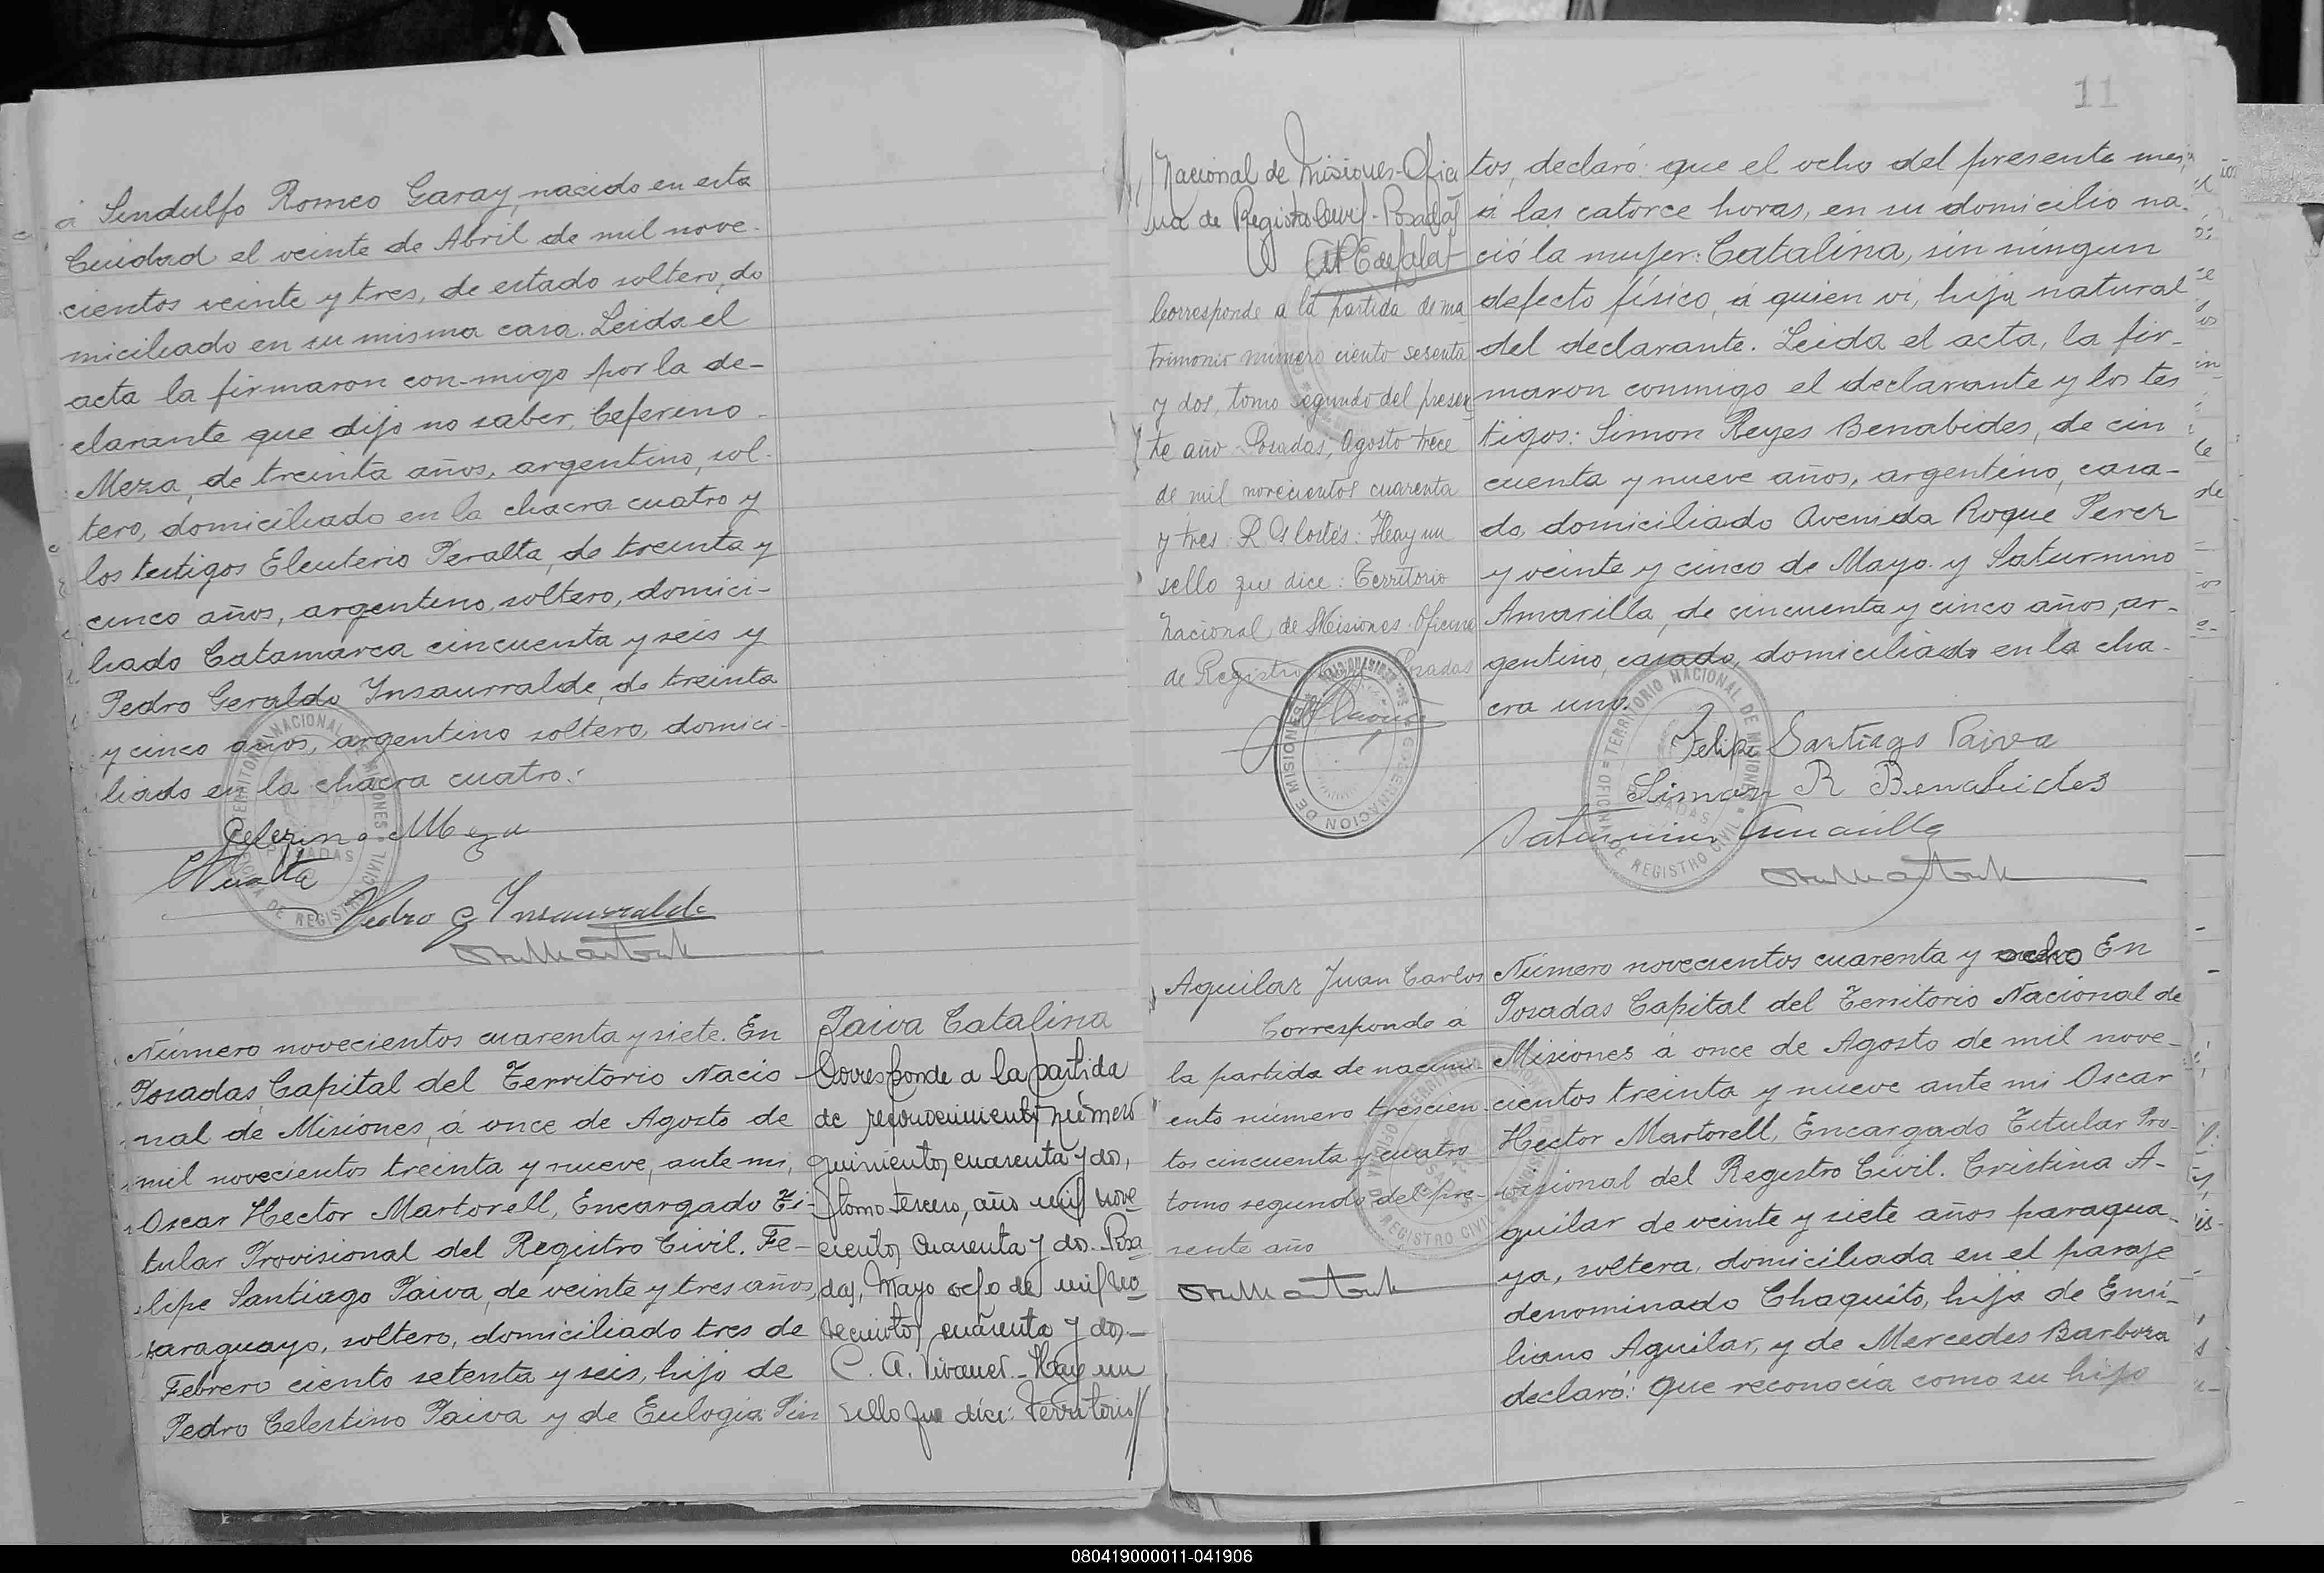 á Sindulfo Romeo Garay, nacido en esta
Ciudad el veinte de Abril de mil nove-
cientos veinte y tres, de estado soltero, do
miciliado en su misma casa. Leida el
acta la firmaron con-migo por la de-
clarante que dijo no saber, Ceferino
Meza, de treinta años, argentino, sol-
tero, domiciliado en la chacra cuatro y
los testigos Eleuterio Peralta, de treinta y
cinco años, argentino, soltero, domici-
liado Catamarca cincuenta y seis y
Pedro Geraldo Insaurralde, de treinta
y cinco años, argentino soltero, domici-
liado en la chacra cuatro.
Ceferino Meza
Pedro G Insaurralde
Número novecientos cuarenta y siete. En
Posadas Capital del Territorio Nacio
nal de Misiones, á once de Agosto de
mil novecientos treinta y nueve, ante mi,
Oscar Hector Martorell, Encargado Ti-
tular Provisional del Registro Civil. Fe-
lipe Santiago Paiva, de veinte y tres años,
paraguayo, soltero, domiciliado tres de
Febrero ciento setenta y seis, hijo de
Pedro Celestino Paiva y de Eulogia
Paiva Catalina
Corresponde a la partida
de reconocimiento número
quinientos cuarenta y dos,
tomo tercero, año mil nove
cientos cuarenta y dos. Posa
das, Mayo ocho de mil no
vecientos cuarenta y dos.-
C. A. Vivanes.- Hay un
sello que dice: Territorio//
11
Nacional de Misiones-Ofici
na de Registro Civil-Posadas
Corresponde a la partida de ma
trimonio número ciento sesenta
y dos, tomo segundo del presen
te año. Posadas, Agosto trece
de mil novecientos cuarenta
y tres. R. Cortés: Hay un
sello que dice: Territorio
Nacional de Misiones. Oficina
de Registro Posadas
GOBERNACION DE MISIONES
tos, declaró: que el ocho del presente mes,
á las catorce horas, en su domicilio na-
ció la mujer: Catalina, sin ningun
defecto físico, á quien vi, hija natural
del declarante. Leida el acta, la fir-
maron conmigo el declarante y los tes
tigos: Simon Reyes Benabides, de cin
cuenta y nueve años, argentino, casa-
do, domiciliado Avenida Roque Perez
y veinte y cinco de Mayo y Saturnino
Amarilla, de cincuenta y cinco años, ar-
gentino, casado, domiciliado en la cha-
cra uno.
Felipe Santiago Paiva
Simon R Benabides
Saturnino Amarilla
TERRITORIO NACIONAL DE MISIONES
OFICINA DE REGISTRO CIVIL
POSADAS
Aguilar Juan Carlos
Corresponde á
la partida de nacimi
ento número trescien
tos cincuenta y cuatro
tomo segundo del pre-
sente año
Número novecientos cuarenta y ocho En
Posadas Capital del Territorio Nacional de
Misiones á once de Agosto de mil nove-
cientos treinta y nueve ante mi Oscar
Hector Martorell, Encargado Titular Pro-
visional del Registro Civil. Cristina A-
guilar de veinte y siete años paragua-
ya, soltera, domiciliada en el paraje
denominado Chaquito, hija de Emi-
liano Aguilar, y de Mercedes Barboza
declaró: Que reconocía como su hijo
080419000011-041906